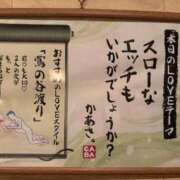 本日のLOVEテーマ
スローな
エッチも
いかがでしょうか?
かあさ。
GABA
おすすめのLOVEスタイル
「鶯の谷渡り」